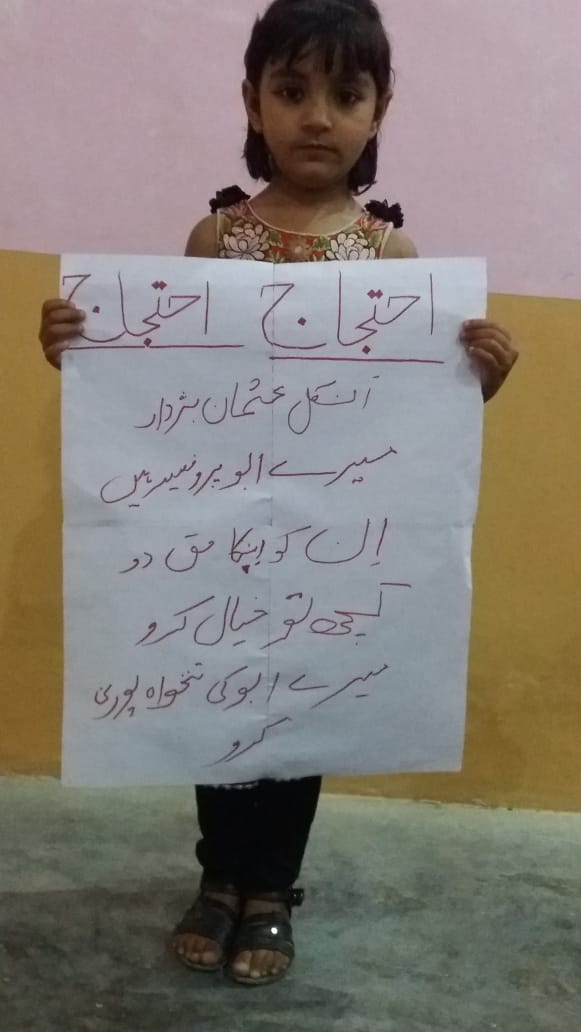 احتجاج احتجاج
انکل عثمان بزدار
میرے ابو پروفیسر ہیں
اِن کو اِنکا حق دو
کچھ تو خیال کرو
میرے ابو کی تنخواہ پوری
کرو